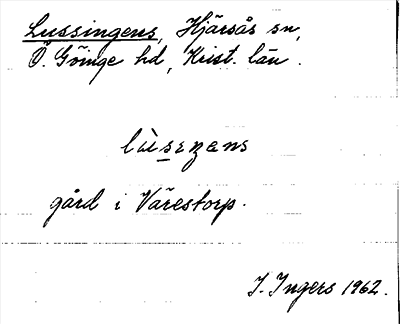 Lussingens, Hjärsås sn,
Ö. Göinge hd, Krist. län.
gård i Värestorp.
I. Ingers 1962.